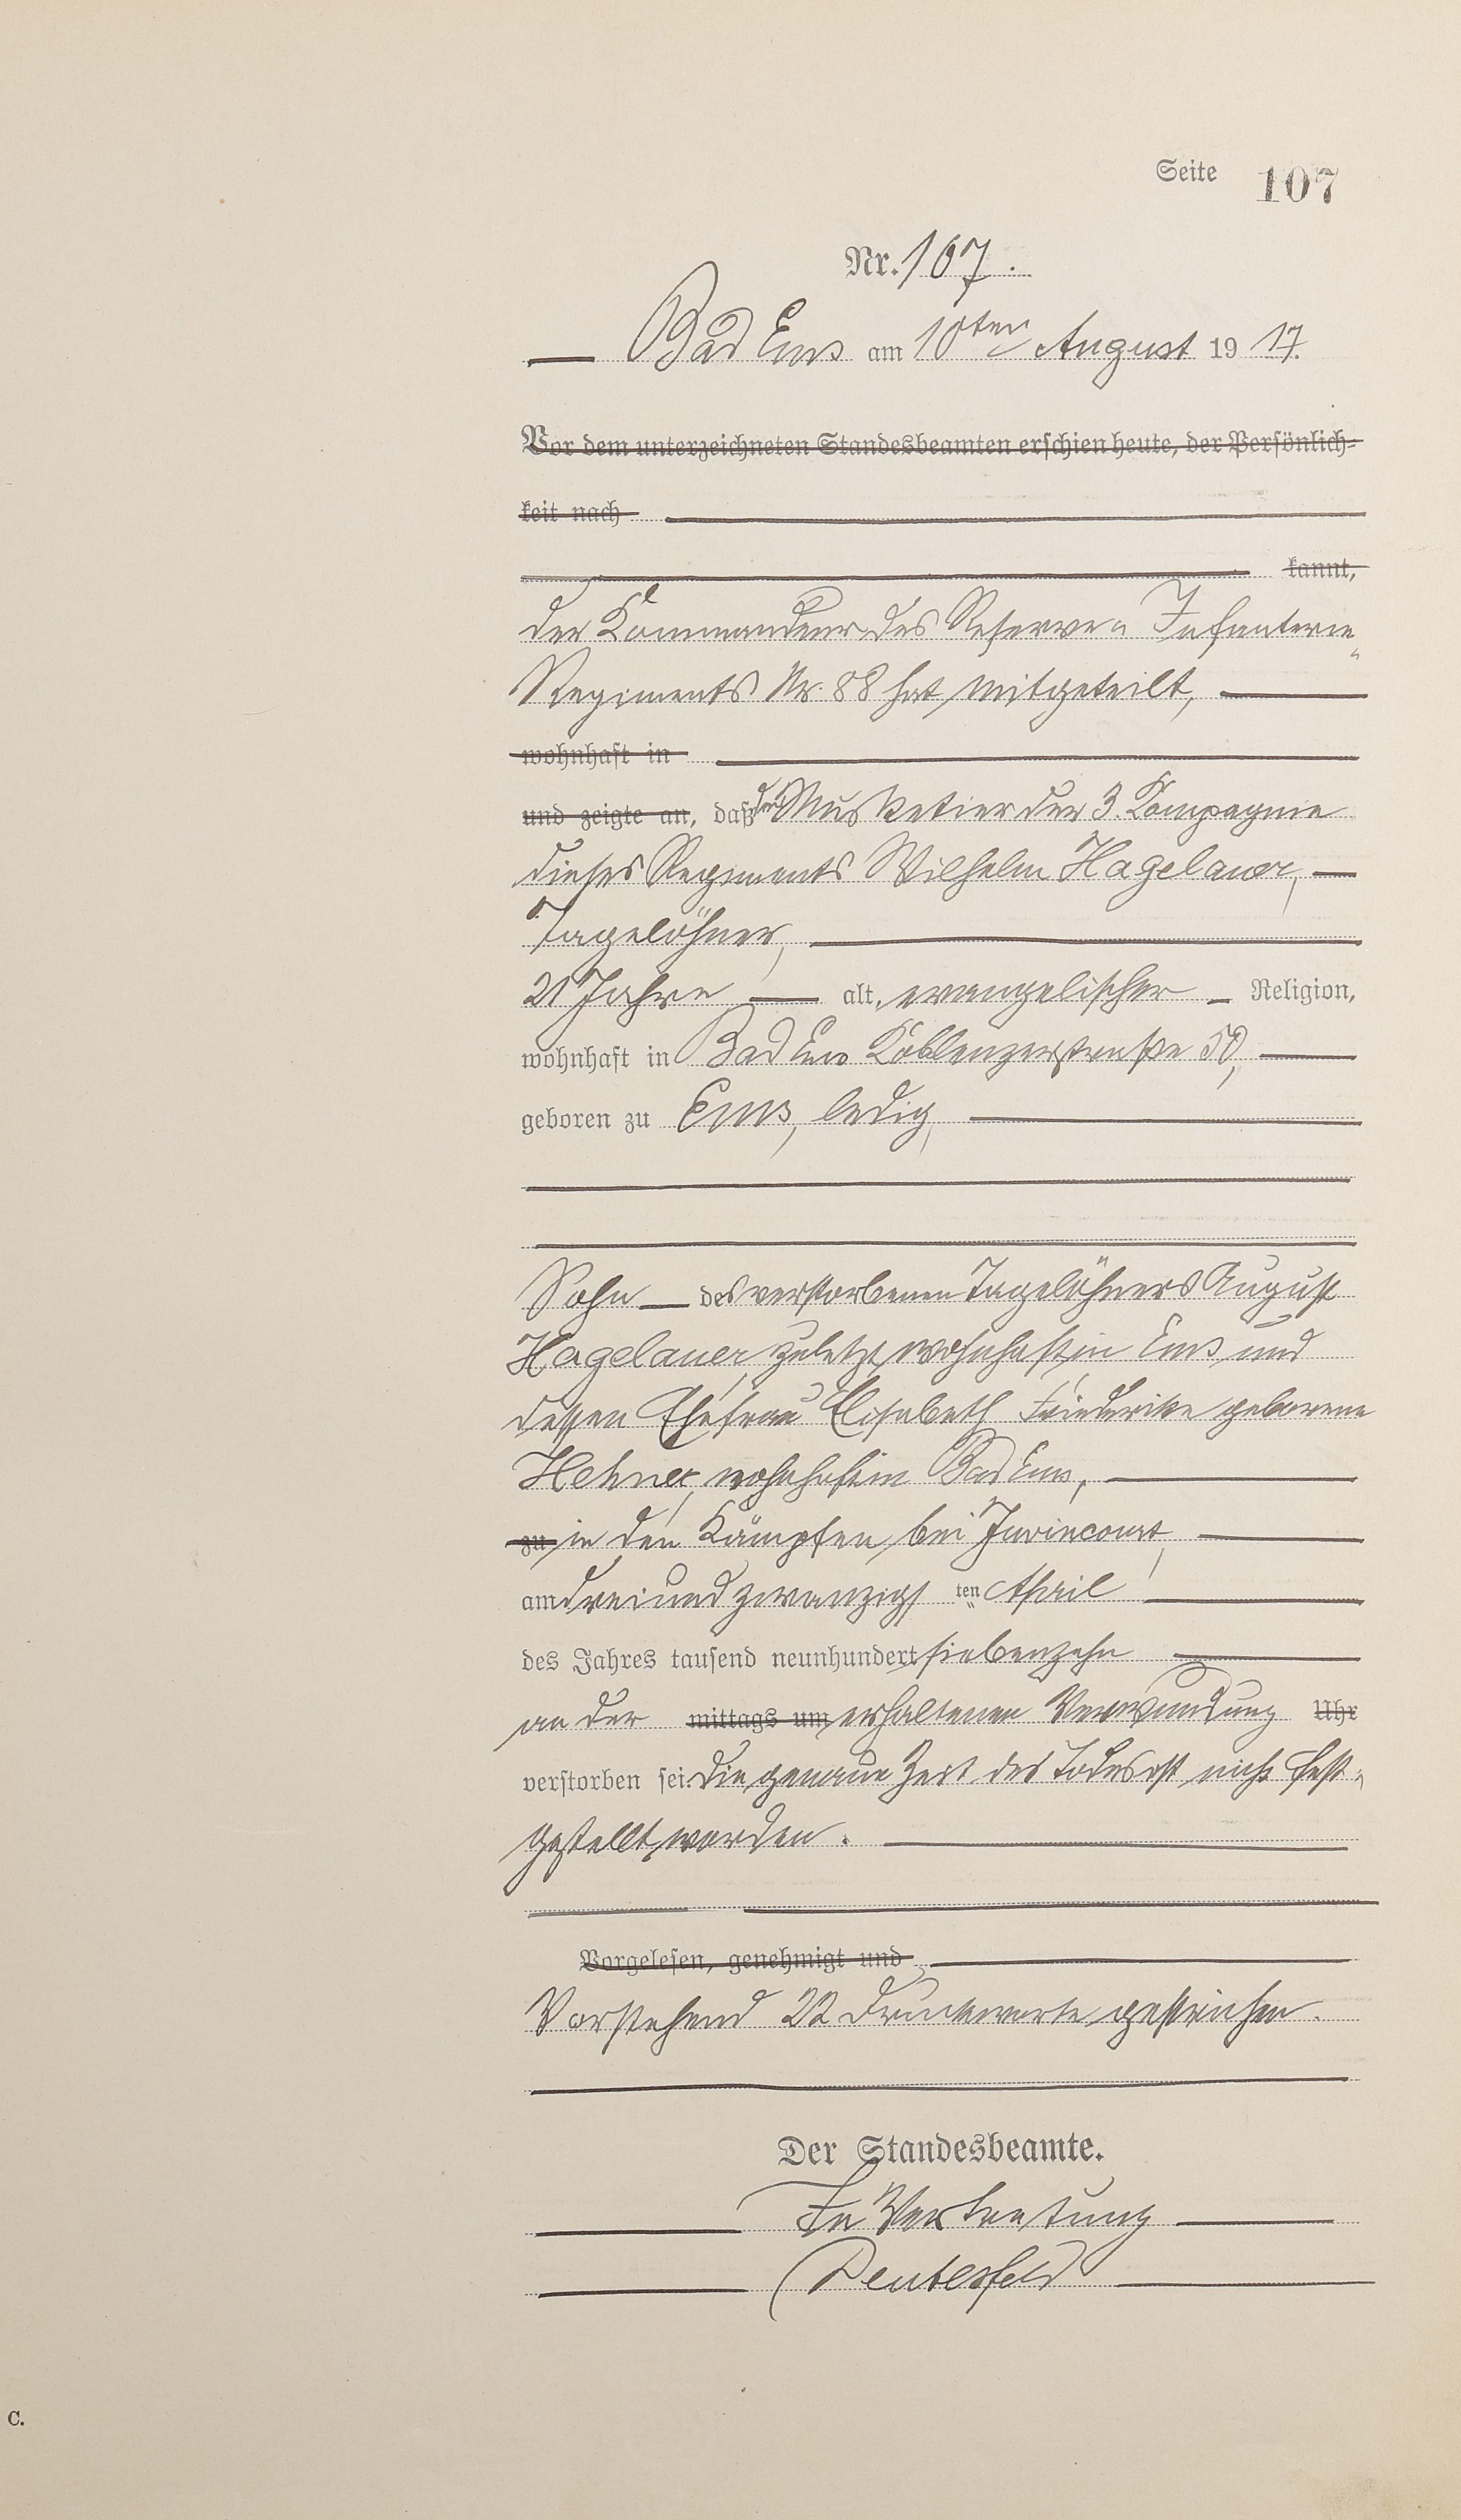 Seite 107
Nr. 107.
Bad Ems am 10ten August 19 17.
Vor dem unterzeichneten Standesbeamten erschien heute, der Persönlich-
keit nach
kannt,
der Kommandeur des Reserve-Infanterie-
Regiments Nr. 88 hat mitgeteilt,
wohnhaft in
und zeigte an, daß der Musketier der 3. Kompagnie
dieses Regiments Wilhelm Hagelauer,
Tagelöhner,
21 Jahre alt, evangelischer Religion,
wohnhaft in Bad Ems Koblenzerstraße 50,
geboren zu Ems, ledig,
Sohn des verstorbenen Tagelöhners August
Hagelauer, zuletzt wohnhaft in Ems und
dessen Ehefrau Elisabeth Friederike geborene
Hehner, wohnhaft in Bad Ems,
zu in den Kämpfen bei Juvincourt,
am dreiundzwanzigsten April
des Jahres tausend neunhundert siebenzehn
an der mittags um erhaltenen Verwundung Uhr
verstorben sei. Die genaue Zeit des Todes ist nicht fest-
gestellt worden.
Vorgelesen, genehmigt und
Vorstehend 22 Druckworte gestrichen.
Der Standesbeamte.
In Vertretung
C.